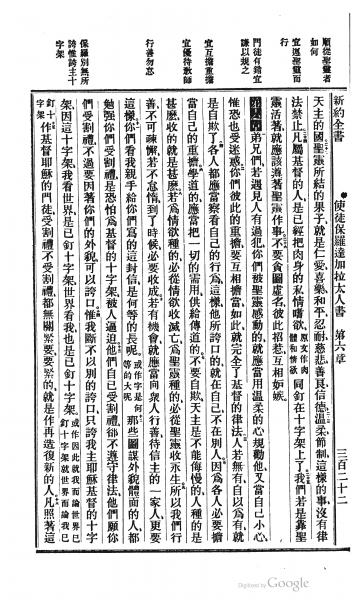 新約全書 使徒保羅達加拉太人書 第六章 三百二十二
順從聖靈者如何
天主的國聖靈所結的果子就是仁愛喜樂和平忍耐慈悲善良信德溫柔節制這樣的事沒有律
宜遵聖靈而行
法禁止凡屬基督的人是已經把肉身的私情嗜欲原文作肉體和情欲同釘在十字架上了我們若是靠聖
靈活著就應該遵著聖靈作事不要貪圖虛名彼此招惹互相妒嫉
門徒有錯宜謙以規之
第六章弟兄們若遇見人有過犯你們被聖靈感動的就應當用溫柔的心規勸他又當自己小心
惟恐也受迷惑你們彼此的重擔要互相擔當如此就完全了基督的律法人若無有自以爲有就
宜互擔重擔
是自欺了各人都應當察看自己的行爲這樣他所誇口的就在自己不在別人因爲各人必要擔
宜優待教師
當自己的重擔學道的應當把一切的需用供給傳道的不要自欺天主是不能侮慢的人種的是
甚麽收的就是甚麽若爲情欲種的必從情欲收滅亡爲聖靈種的必從聖靈收永生所以我們行
行善勿怠
善不可疎懈若不怠惰到了時候必要收成若有機會就應當向衆人行善待信主的一家人更要
這樣你們看我親手給你們寫的這封信是何等的長呢或作字是何等的大呢那些圖謀外貌體面的人都
勉强你們受割禮是恐怕爲基督的十字架被人逼迫他們自己受割禮卻不遵守律法他們願你
保羅別無所誇惟誇主十字架
們受割禮不過要因著你們的外貌可以誇口惟我斷不以別的誇口只誇我主耶穌基督的十字
架因這十字架我看世界是已釘十字架世界看我也是已釘十字架或作因此就我而論世界已釘十字架就世界而論我已
釘十字架作基督耶穌的門徒受割禮不受割禮都無關緊要要緊的就是作再造復新的人凡照著這
Digitized by Google